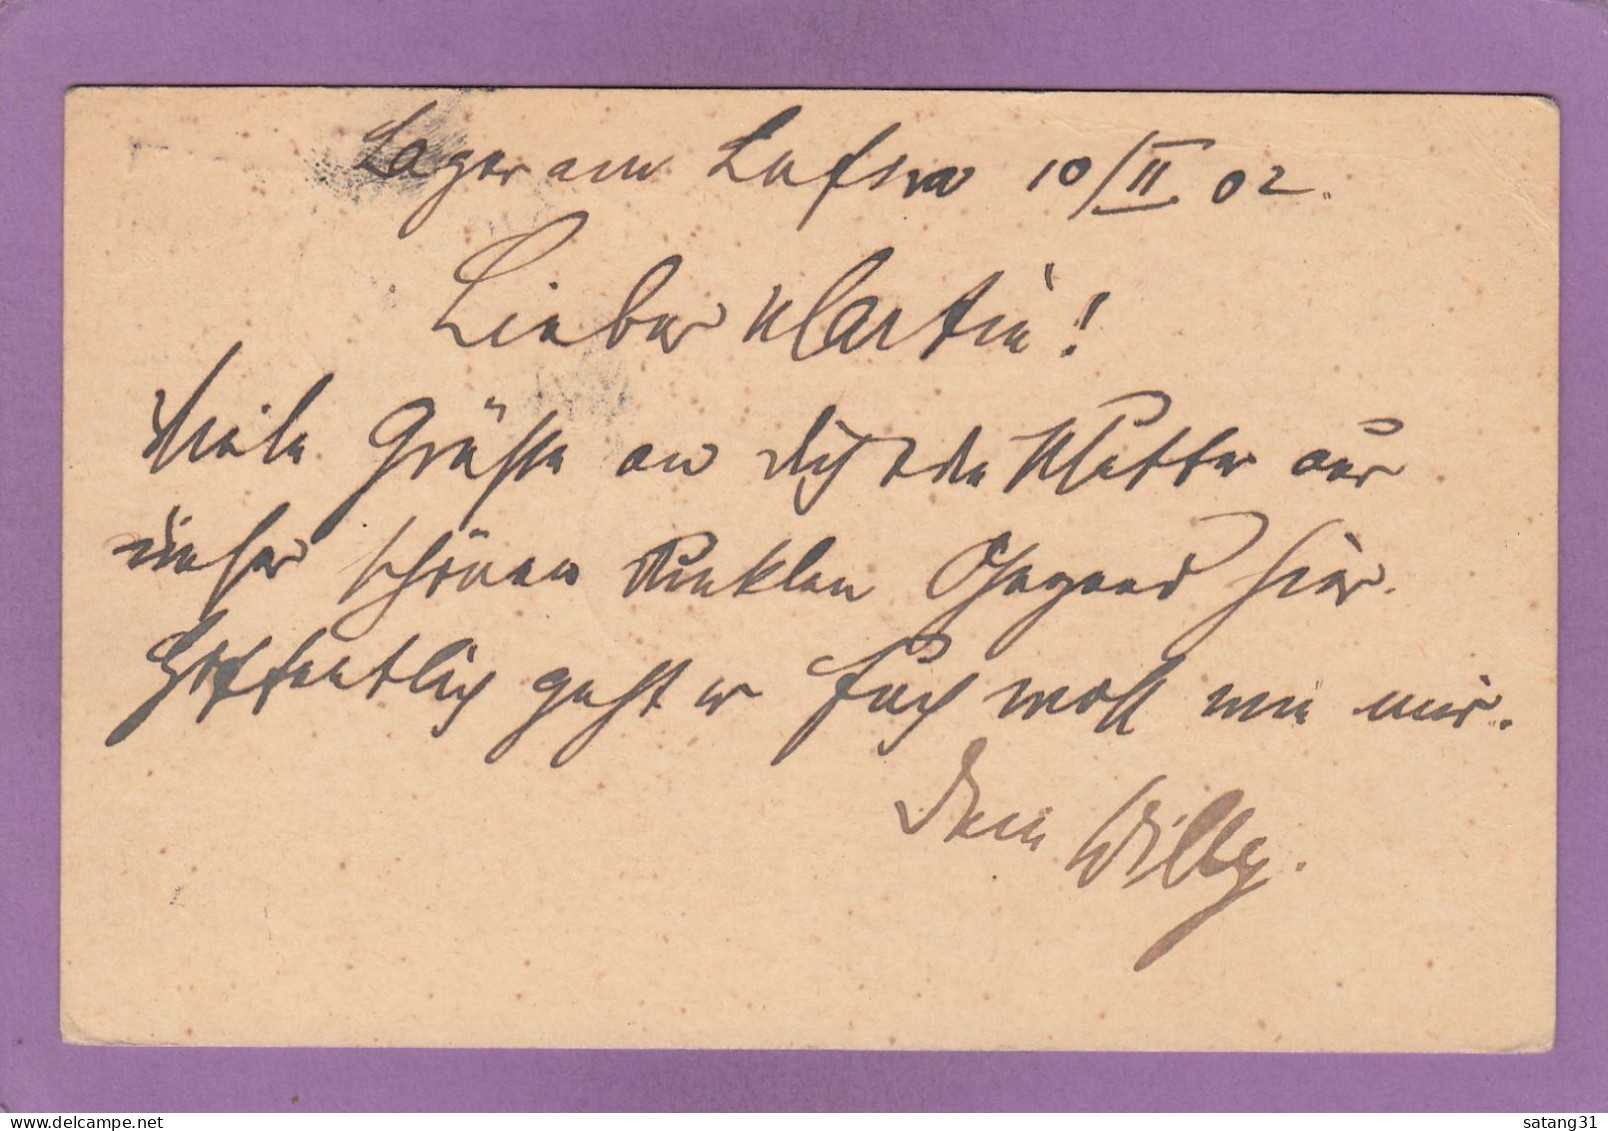 Lager am Lafiwa 10/II 02.
Lieber Martin!
Viele Grüsse an Dich & die Mutter aus
dieser schönen dunklen Gegend hier.
Hoffentlich geht es Euch wohl wie mir.
Dein Willy.
satang31